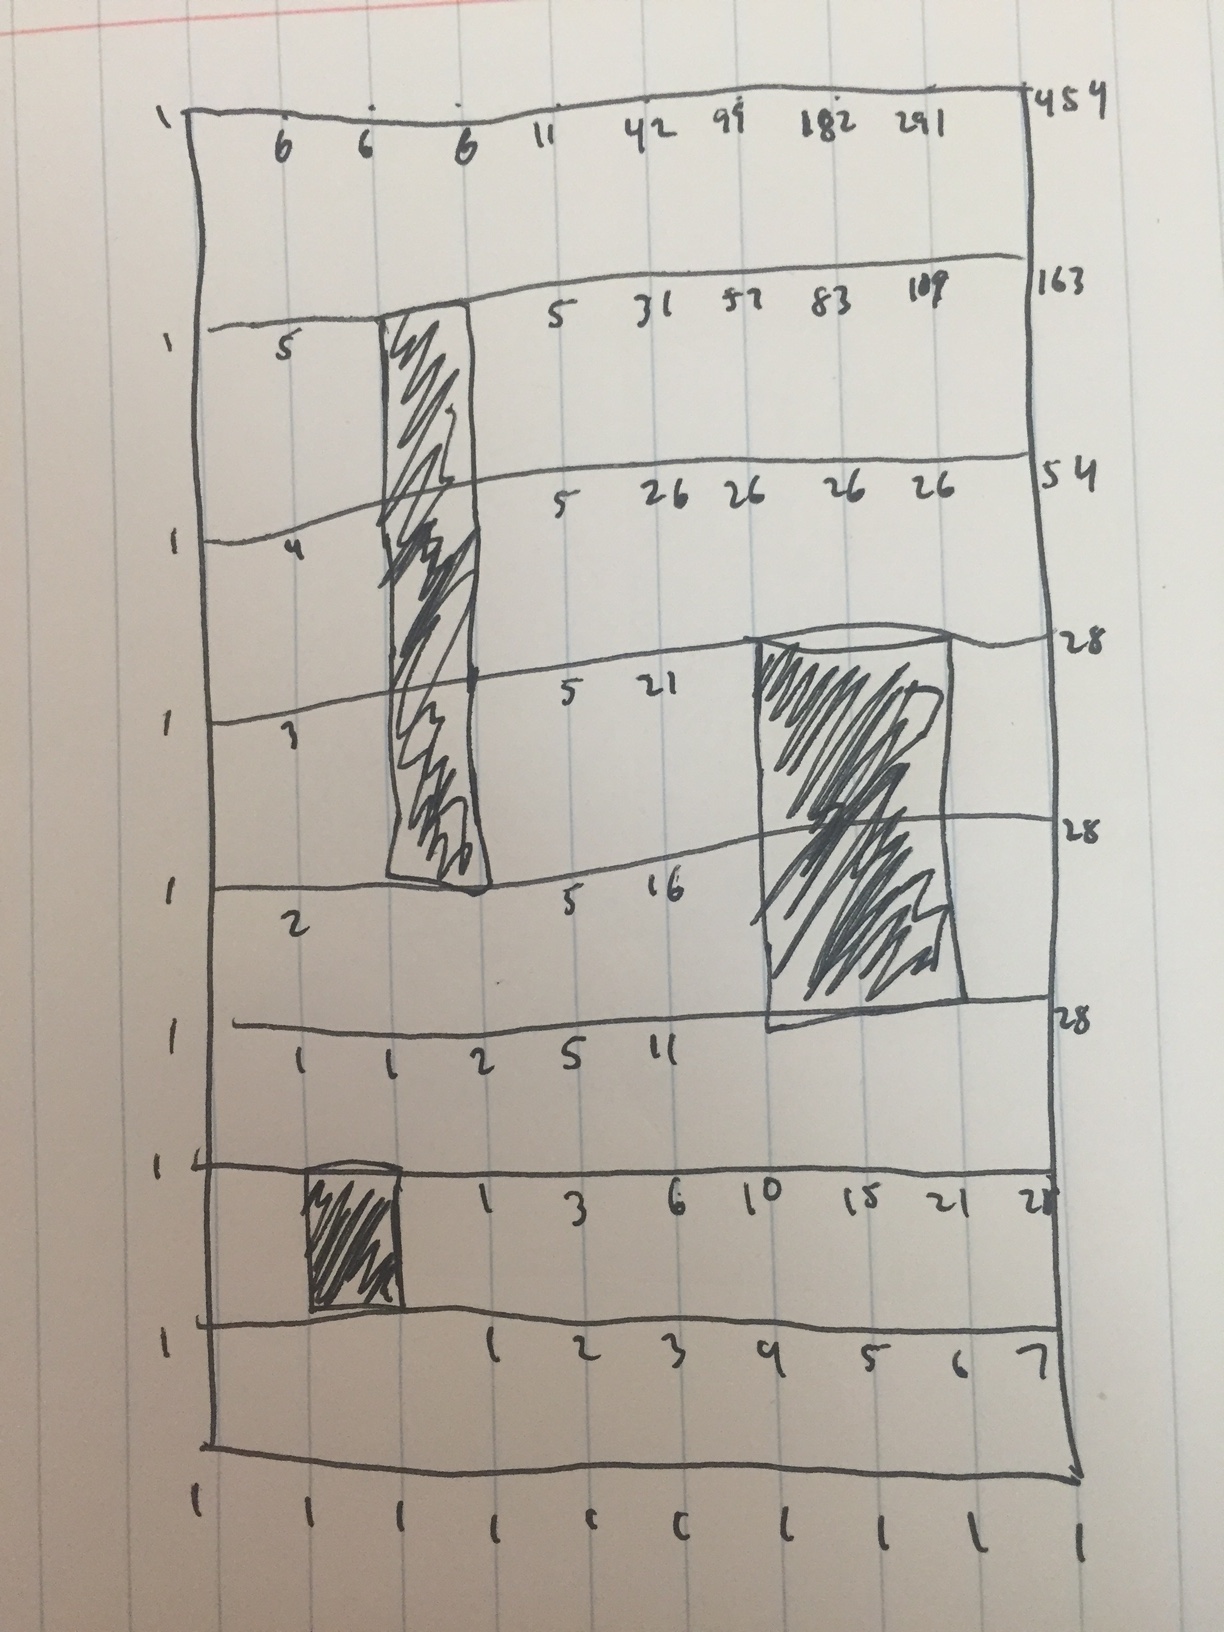 1 6 6 6 11 42 99 182 291 454
1 5 5 31 57 83 109 163
1 4 5 26 26 26 26 54
1 3 5 21 28
1 2 5 16 28
1 1 1 2 5 11 28
1 1 3 6 10 15 21 28
1 1 2 3 4 5 6 7
1 1 1 1 1 1 1 1 1 1